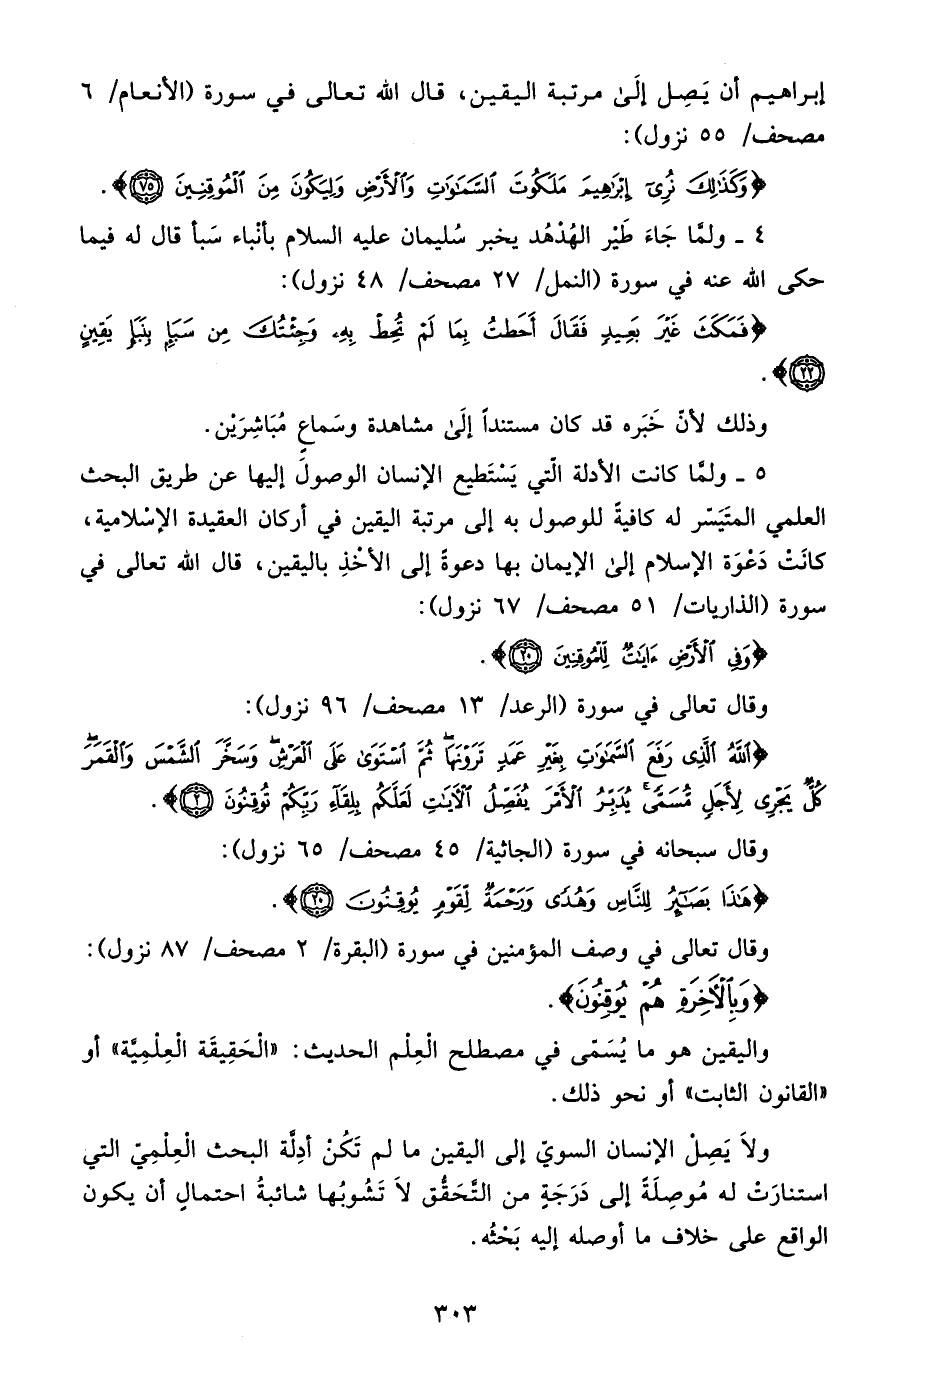 إبراهيم أن يَصِل إلَىٰ مرتبة اليقين، قال الله تعالى في سورة (الأنعام/ ٦
مصحف/ ٥٥ نزول):
﴿وَكَذَٰلِكَ نُرِىٓ إِبْرَٰهِيمَ مَلَكُوتَ ٱلسَّمَٰوَٰتِ وَٱلْأَرْضِ وَلِيَكُونَ مِنَ ٱلْمُوقِنِينَ ٧٥﴾.
٤ ـ ولمَّا جَاءَ طَيْر الهُدْهُد يخبر سُليمان عليه السلام بأنْباء سَبأ قال له فيما
حكى الله عنه في سورة (النمل/ ٢٧ مصحف/ ٤٨ نزول):
﴿فَمَكَثَ غَيْرَ بَعِيدٍ فَقَالَ أَحَطتُ بِمَا لَمْ تُحِطْ بِهِۦ وَجِئْتُكَ مِن سَبَإٍ بِنَبَإٍ يَقِينٍ
٢٢﴾.
وذلك لأنّ خَبَره قد كان مستنداً إلَىٰ مشاهدة وسَماعٍ مُبَاشِرَيْن.
٥ ـ ولمَّا كانت الأدلة الّتي يَسْتَطيع الإنسان الوصولَ إليها عن طريق البحث
العلمي المتَيَسّر له كافيةً للوصول به إلى مرتبة اليقين في أركان العقيدة الإسْلامية،
كانَتْ دَعْوَة الإسلام إلىٰ الإيمان بها دعوةً إلى الأخْذِ باليقين، قال الله تعالى في
سورة (الذاريات/ ٥١ مصحف/ ٦٧ نزول):
﴿وَفِى ٱلْأَرْضِ ءَايَٰتٌ لِّلْمُوقِنِينَ ٢٠﴾.
وقال تعالى في سورة (الرعد/ ١٣ مصحف/ ٩٦ نزول):
﴿ٱللَّهُ ٱلَّذِى رَفَعَ ٱلسَّمَٰوَٰتِ بِغَيْرِ عَمَدٍ تَرَوْنَهَا ۖ ثُمَّ ٱسْتَوَىٰ عَلَى ٱلْعَرْشِ ۖ وَسَخَّرَ ٱلشَّمْسَ وَٱلْقَمَرَ ۖ
كُلٌّ يَجْرِى لِأَجَلٍ مُّسَمًّى ۚ يُدَبِّرُ ٱلْأَمْرَ يُفَصِّلُ ٱلْءَايَٰتِ لَعَلَّكُم بِلِقَآءِ رَبِّكُمْ تُوقِنُونَ ٢﴾.
وقال سبحانه في سورة (الجاثية/ ٤٥ مصحف/ ٦٥ نزول):
﴿هَٰذَا بَصَٰٓئِرُ لِلنَّاسِ وَهُدًى وَرَحْمَةٌ لِّقَوْمٍ يُوقِنُونَ ٢٠﴾.
وقال تعالى في وصف المؤمنين في سورة (البقرة/ ٢ مصحف/ ٨٧ نزول):
﴿وَبِٱلْأَخِرَةِ هُمْ يُوقِنُونَ﴾.
واليقين هو ما يُسَمّى في مصطلح الْعِلْم الحديث: «الْحَقِيقَة الْعِلْمِيَّة» أو
«القانون الثابت» أو نحو ذلك.
ولاَ يَصِلْ الإنسان السويّ إلى اليقين ما لم تَكُنْ أدِلَّة البحث الْعِلْمِيّ التي
استنارَتْ له مُوصِلَةً إلى دَرَجَةٍ من التَّحَقُّق لاَ تَشُوبُها شائبةُ احتمالٍ أن يكون
الواقع على خلاف ما أوصله إليه بَحْثُه.
٣٠٣